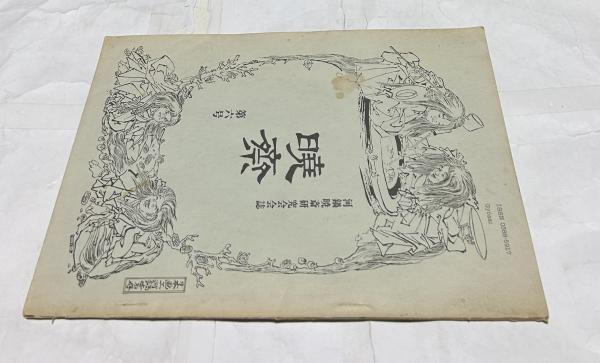 ISSN 0288-5917
Gyōsai
河鍋暁斎研究会会誌
暁斎
第六号